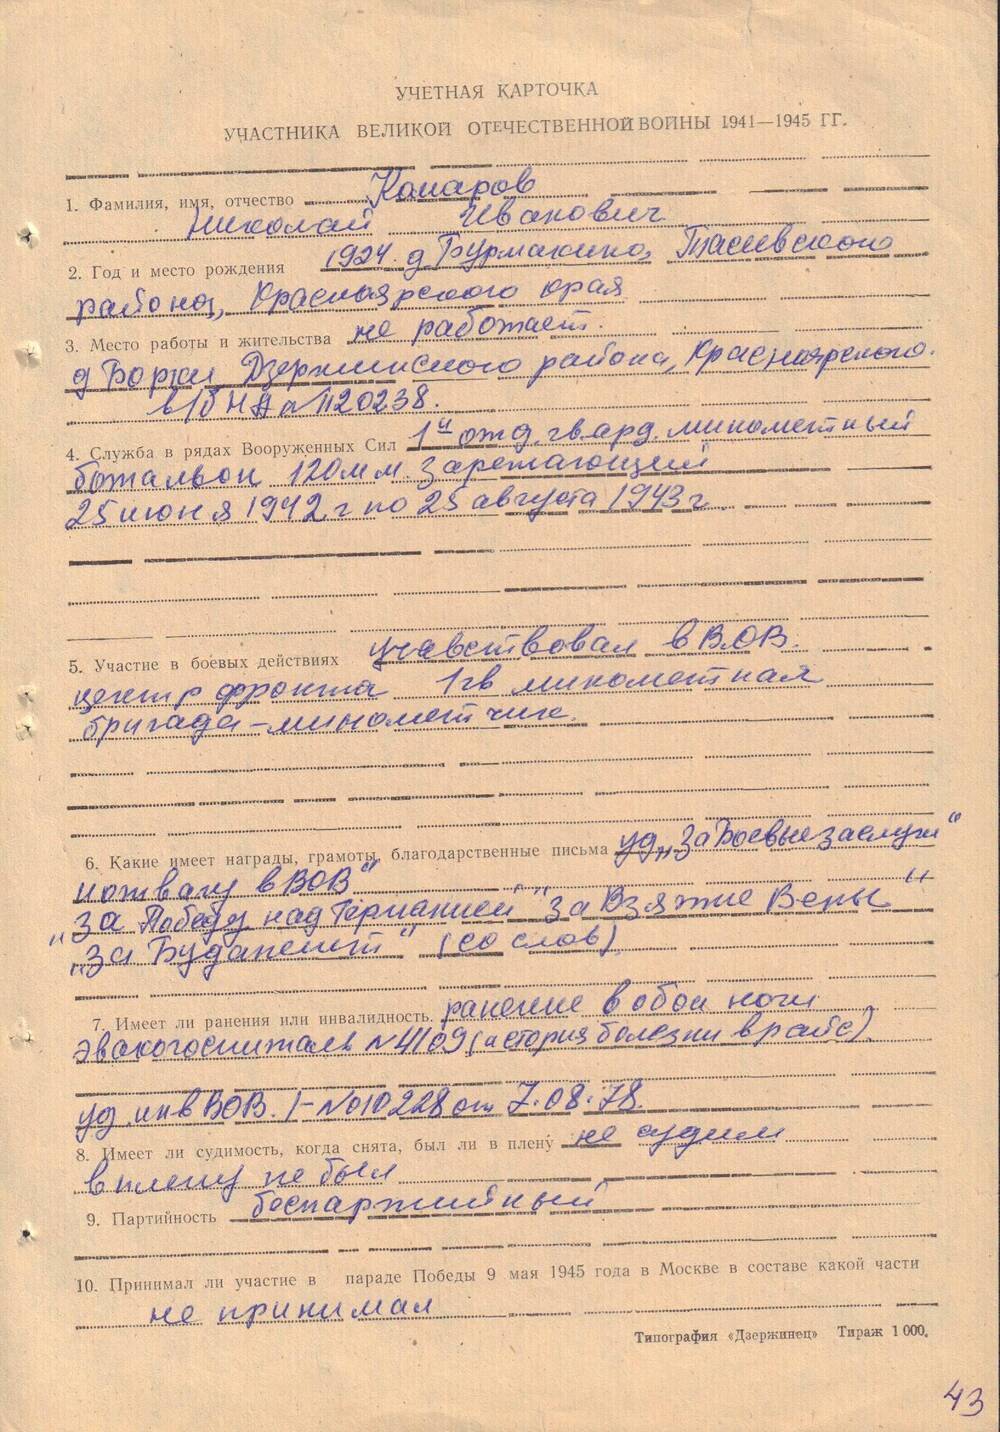 УЧЕТНАЯ КАРТОЧКА
УЧАСТНИКА ВЕЛИКОЙ ОТЕЧЕСТВЕННОЙ ВОЙНЫ 1941—1945 ГГ.
1. Фамилия, имя, отчество Комаров
Николай Иванович
2. Год и место рождения 1924. д Бурмакино, Тасеевского
района, Красноярского края
3. Место работы и жительства не работает.
д Борки Дзержинского района, Красноярского.
в/б НД № 1120238.
4. Служба в рядах Вооруженных Сил 1й отд. гвард. минометный
батальон 120 мм. заряжающий
25 июня 1942 г по 25 августа 1943 г.
5. Участие в боевых действиях учавствовал в В.О.В.
центр фронта 1 гв минометная
бригада - минометчик.
6. Какие имеет награды, грамоты, благодарственные письма уд „За Боевые заслуги“
и отвагу в ВОВ“
„за Победу над Германией“ „за Взятие Вены“
„за Будапешт“ (со слов)
7. Имеет ли ранения или инвалидность. ранение в обои ноги
эвакогоспиталь № 4109 (история болезни в райс).
уд. инв ВОВ. I - № 010228 от 7.08.78.
8. Имеет ли судимость, когда снята, был ли в плену не судим
в плену не был
9. Партийность беспартийный
10. Принимал ли участие в параде Победы 9 мая 1945 года в Москве в составе какой части
не принимал
Типография «Дзержинец» Тираж 1 000.
43